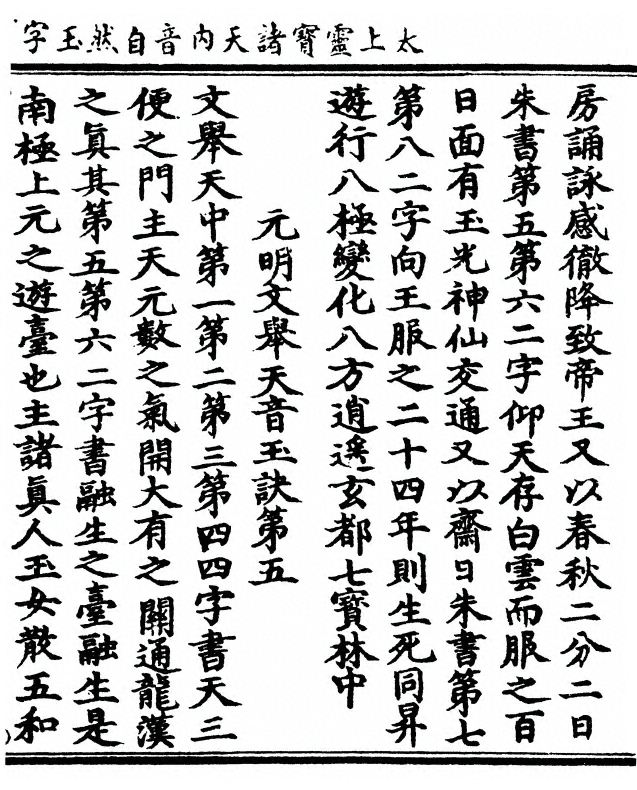 太上靈寶諸天內音自然玉字
房誦詠感徹降致帝王又以春秋二分二日
朱書第五第六二字仰天存白雲而服之百
日面有玉光神仙交通又以齋日朱書第七
第八二字向王服之二十四年則生死同昇
遊行八極變化八方逍遙玄都七寶林中
元明文舉天音玉訣第五
文舉天中第一第二第三第四四字書天三
便之門主天元數之氣開大有之關通龍漢
之真其第五第六二字書融生之臺融生是
南極上元之遊臺也主諸真人玉女散五和